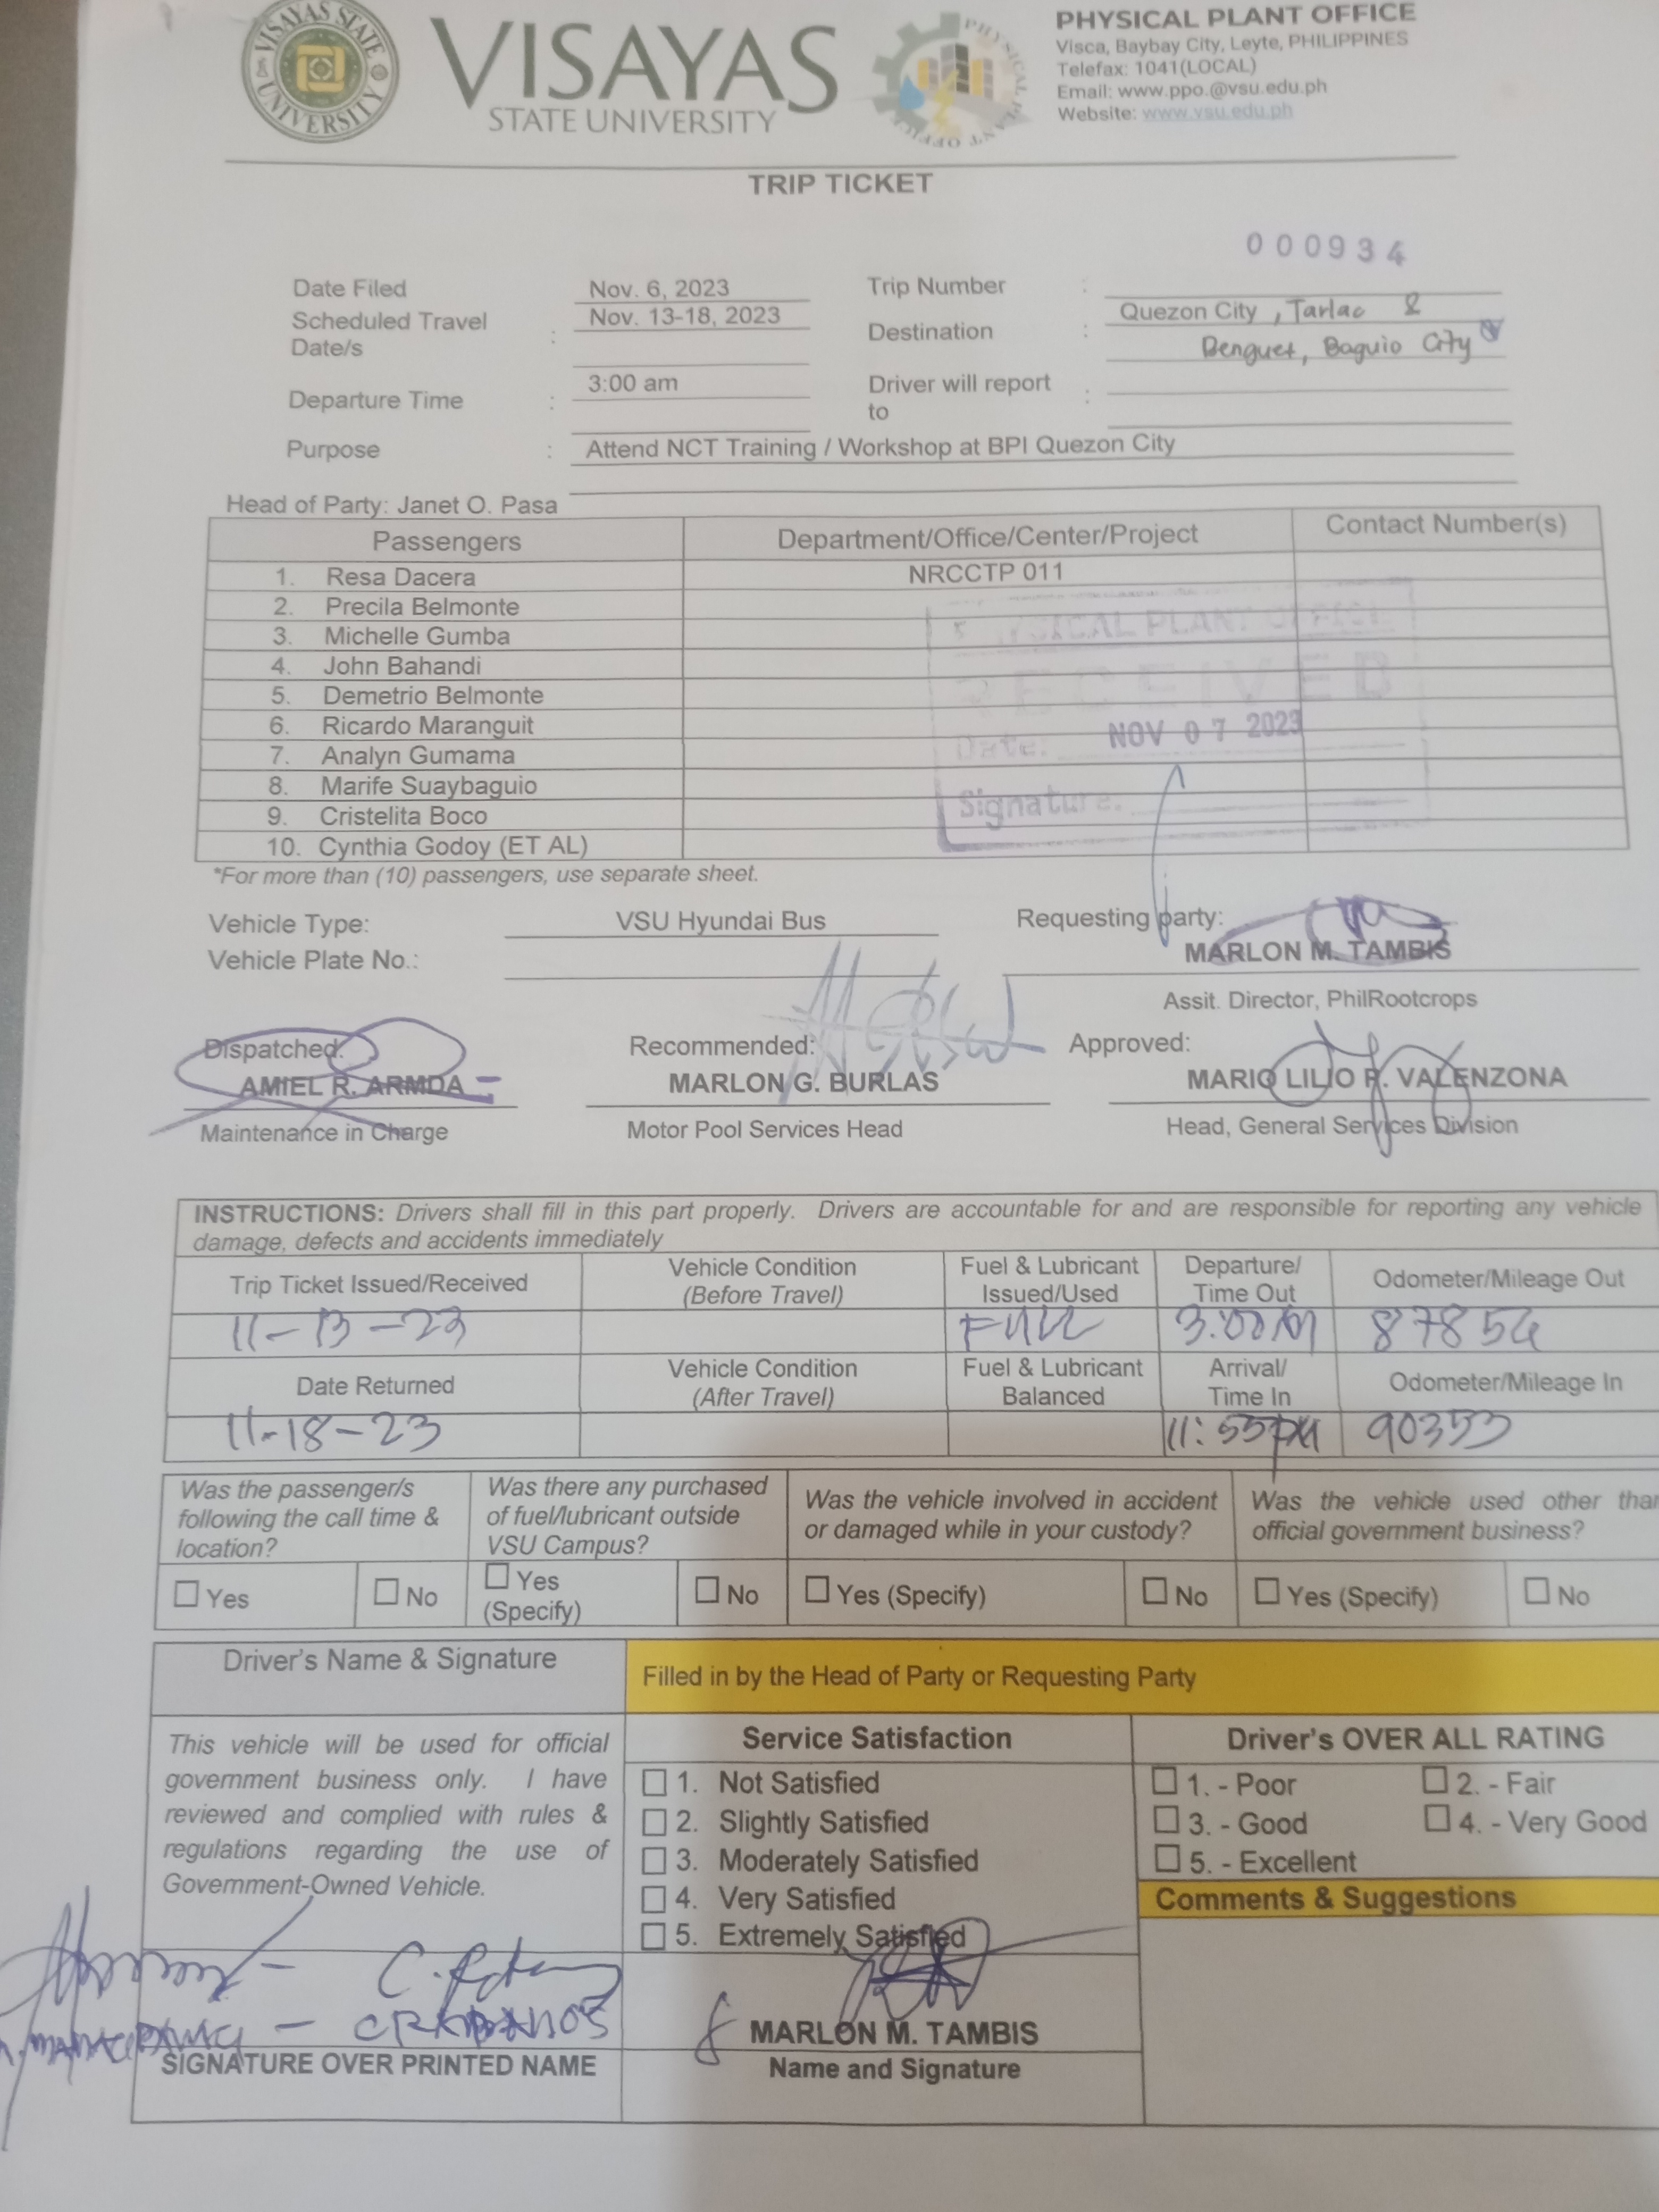 VISAYAS STATE UNIVERSITY
VISAYAS
STATE UNIVERSITY
PHYSICAL PLANT OFFICE
PHYSICAL PLANT OFFICE
Visca, Baybay City, Leyte, PHILIPPINES
Telefax: 1041(LOCAL)
Email: www.ppo.@vsu.edu.ph
Website: www.vsu.edu.ph
TRIP TICKET
000934
Date Filed Nov. 6, 2023 Trip Number :
Scheduled Travel Date/s : Nov. 13-18, 2023 Destination : Quezon City, Tarlac &
Benguet, Baguio City
Departure Time : 3:00 am Driver will report to :
Purpose : Attend NCT Training / Workshop at BPI Quezon City
Head of Party: Janet O. Pasa
Passengers Department/Office/Center/Project Contact Number(s)
1. Resa Dacera NRCCTP 011
2. Precila Belmonte
3. Michelle Gumba
4. John Bahandi
5. Demetrio Belmonte
6. Ricardo Maranguit
7. Analyn Gumama
8. Marife Suaybaguio
9. Cristelita Boco
10. Cynthia Godoy (ET AL)
PHYSICAL PLANT OFFICE
RECEIVED
Date: NOV 07 2023
Signature:
*For more than (10) passengers, use separate sheet.
Vehicle Type: VSU Hyundai Bus Requesting party:
Vehicle Plate No.: MARLON M. TAMBIS
Assit. Director, PhilRootcrops
Dispatched: Recommended: Approved:
AMIEL R. ARMDA MARLON G. BURLAS MARIO LILIO P. VALENZONA
Maintenance in Charge Motor Pool Services Head Head, General Services Division
INSTRUCTIONS: Drivers shall fill in this part properly. Drivers are accountable for and are responsible for reporting any vehicle
damage, defects and accidents immediately
Trip Ticket Issued/Received Vehicle Condition (Before Travel) Fuel & Lubricant Issued/Used Departure/ Time Out Odometer/Mileage Out
11-13-23 FULL 3:00AM
Date Returned Vehicle Condition (After Travel) Fuel & Lubricant Balanced Arrival/ Time In Odometer/Mileage In
11-18-23 11:55PM 90353
Was the passenger/s following the call time & location?
Was there any purchased of fuel/lubricant outside VSU Campus?
Was the vehicle involved in accident or damaged while in your custody?
Was the vehicle used other than official government business?
Yes No Yes (Specify) No Yes (Specify) No Yes (Specify) No
Driver's Name & Signature Filled in by the Head of Party or Requesting Party
This vehicle will be used for official
government business only. I have
reviewed and complied with rules &
regulations regarding the use of
Government-Owned Vehicle.
Service Satisfaction
1. Not Satisfied
2. Slightly Satisfied
3. Moderately Satisfied
4. Very Satisfied
5. Extremely Satisfied
Driver's OVER ALL RATING
1. - Poor 2. - Fair
3. - Good 4. - Very Good
5. - Excellent
Comments & Suggestions
SIGNATURE OVER PRINTED NAME
MARLON M. TAMBIS
Name and Signature